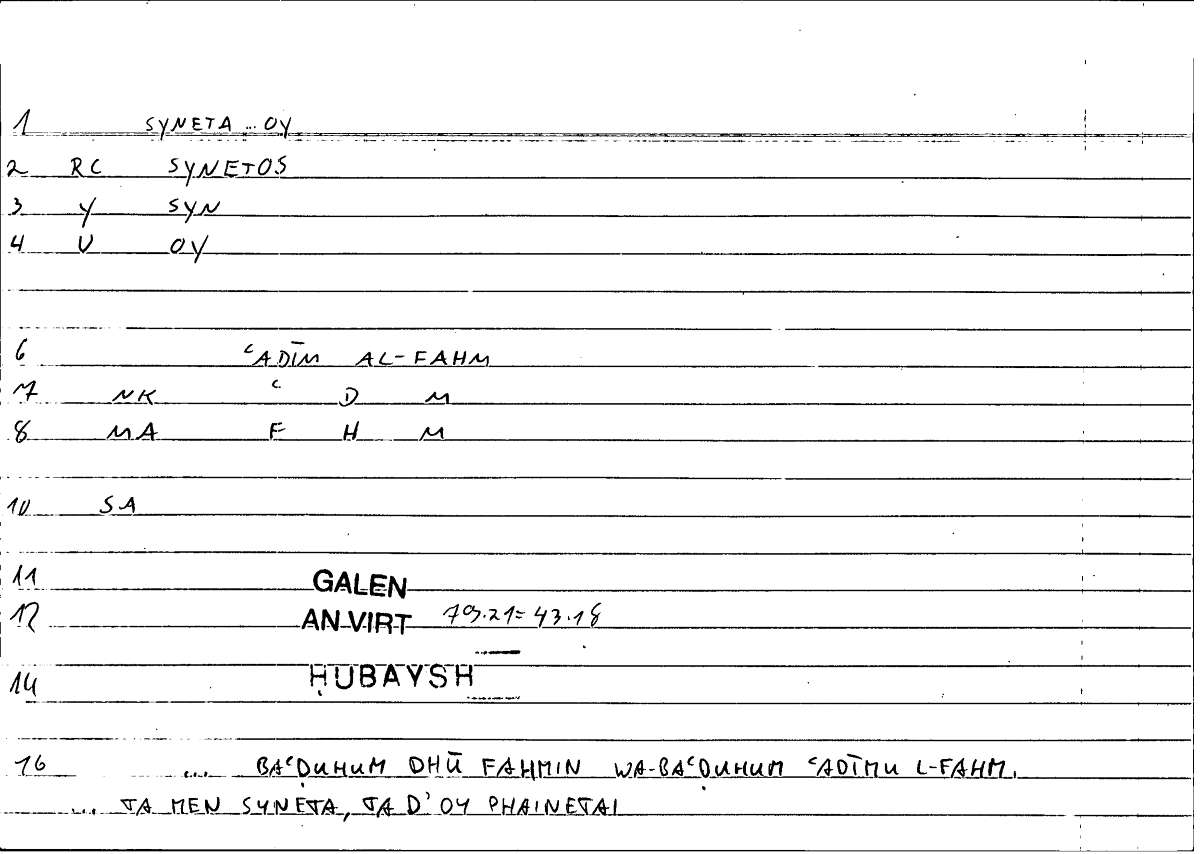 1 SYNETA ... OY
2 RC SYNETOS
3 Y SYN
4 U OY
6 ʿADĪM AL-FAHM
7 NK ʿ D M
8 MA F H M
10 SA
11 GALEN
12 AN VIRT 79.21= 43.18
14 ḤUBAYSH
16 ... BAʿḌUHUM DHŪ FAHMIN WA-BAʿḌUHUM ʿADĪMU L-FAHM.
... TA MEN SYNETA, TA D' OY PHAINETAI